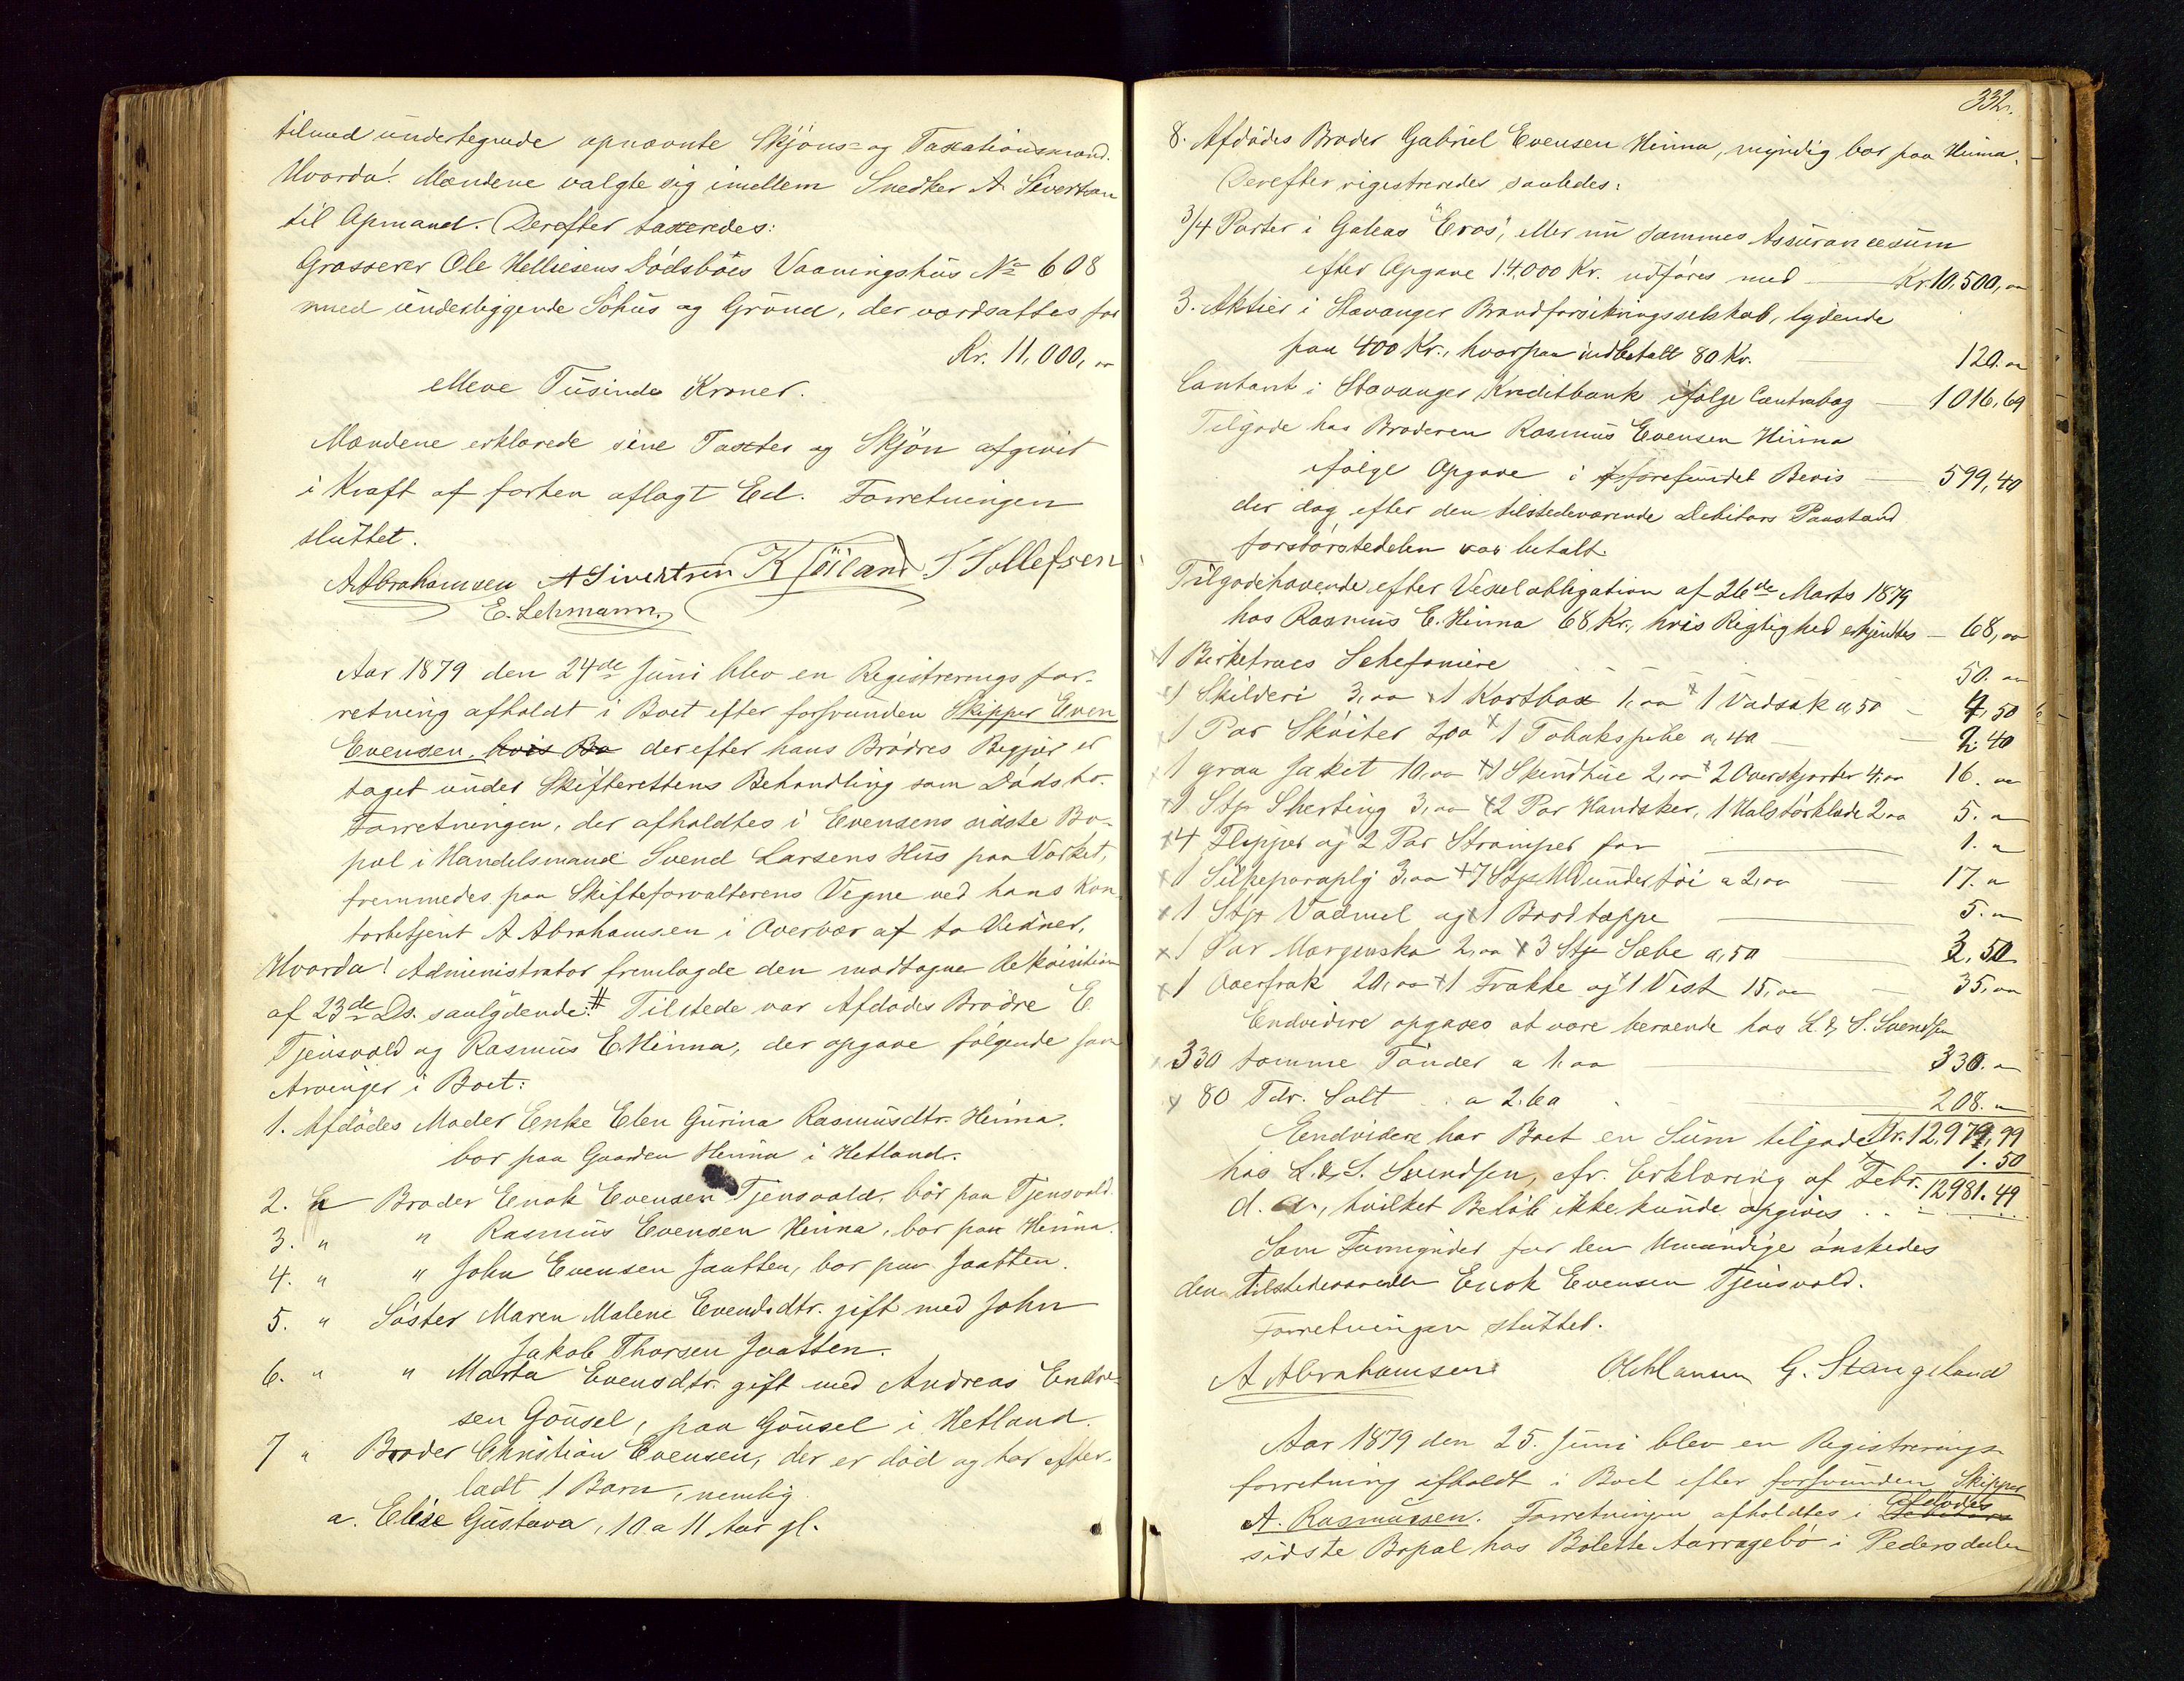 tilmed undertegnede opnævnte Skjöns- og Taxationsmænd.
Hvorda! Mændene valgte sig imellem Snedker A. Sivertsen
til Opmand. Derefter taxeredes:
Grosserer Ole Helliesens Dödsbös Vaaningshus No 608
med underliggende Söhus og Grund, der værdsattes for
Kr. 11,000,00
elleve Tusinde Kroner.
Mændene erklærede sine Taxter og Skjön afgivet
i Kraft af forhen aflagt Ed. Forretningen
sluttet.
A Abrahamsen A Sivertsen K Jöiland T Tollefsen
E. Lehmann.
Aar 1879 den 24de Juni blev en Registreringsfor-
retning afholdt i Boet efter forsvunden Skipper Even
Evensen. hvis Bo derefter hans Brödres Begjær er
taget under Skifterettens Behandling som Dödsbo.
Forretningen, der afholdtes i Evensens sidste Bo-
pæl i Handelsmand Svend Larsens Hus paa Verket,
fremmedes paa Skifteforvalterens Vegne ved hans Kon-
torbetjent A Abrahamsen i Overvær af to Vidner.
Hvorda! Administrator fremlagde den modtagne Rekvisition
af 23de Ds. saalydende: # Tilstede var Afdödes Brödre E.
Tjensvold og Rasmus E. Hinna, der opgave fölgende som
Arvinger i Boet:
1. Afdödes Moder Enke Elen Gurina Rasmusdtr. Hinna.
bor paa Gaarden Hinna i Hetland.
2. " Broder Enok Evensen Tjensvold, bor paa Tjensvold.
3. " " Rasmus Evensen Hinna, bor paa Hinna.
4. " " John Evensen Jaatten, bor paa Jaatten.
5. " Söster Maren Malene Evensdtr. gift med John
Jakob Thorsen Jaatten.
6. " " Marta Evensdtr. gift med Andreas Endre-
sen Gousel, paa Gousel i Hetland.
7 " Broder Christian Evensen, der er död og har efter-
ladt 1 Barn, nemlig
a. Elise Gustava, 10 a 11 Aar gl.
332.
8. Afdödes Broder Gabriel Evensen Hinna, myndig bor paa Hinna.
Derefter registreredes saaledes:
3/4 Parter i Galeas "Eros", eller nu sammes Assurancesum
efter Opgave 14.000 Kr. udföres med Kr. 10,500,00
3. Aktier i Stavanger Brandforsikringsselskab, lydende
paa 400 Kr., hvorpaa indbetalt 80 Kr. 120.00
Contant i Stavanger Kreditbank ifölge Contrabog 1016,69
Tilgode hos Broderen Rasmus Evensen Hinna
ifölge Opgave i forefundet Bevis 599,40
der dog efter den tilstedeværende Debitors Paastand
forstörstedelen var betalt.
Tilgodehavende efter Vexelobligation af 26de Marts 1879
hos Rasmus E. Hinna 68 Kr., hvis Rigtighed erkjendtes 68,00
1 Birketræes Schefoniere 50.00
1 Skilderi 3,00 1 Kortbox 1,00 1 Vadsæk 0,50 4,50
1 Par Sköiter 2,00 1 Tobakspibe 0,40 2.40
1 graa Jaket 10,00 1 Skindhue 2,00 2 Overskjorter 4,00 16.00
1 Stp Sherting 3,00 2 Par Handsker, 1 Halstörklæde 2,00 5.00
4 Flipper og 2 Par Strömper for 1.00
1 Silkeparaply 3,00 7 Stp Uldundertöi a 2,00 17.00
1 Stp Vadmel og 1 Brodtæppe 5.00
1 Par Morgensko 2,00 3 Stp Sæbe 0,50 2,50
1 Overfrak 20,00 1 Frakke og 1 Vest 15,00 35,00
Endvidere opgaves at være beroende hos L. & S. Svendsen
330 tomme Tönder a 1.00 330.00
80 Tdr. Salt a 2.60 208.00
Endvidere har Boet en Sum tilgode Kr. 12,979,99
hos L. & S. Svendsen, cfr. Erklæring af Febr. 1.50
d. A., hvilket Belöb ikke kunde opgives 12981.49
Som Formynder for den Umyndige önskedes
den tilstedeværende Enok Evensen Tjensvold.
Forretningen sluttet.
A Abrahamsen G. Stangeland
Aar 1879 den 25. Juni blev en Registrerings-
forretning afholdt i Boet efter forsvunden Skipper
A. Rasmussen. Forretningen afholdtes i Afdödes
sidste Bopæl hos Bolette Aarragebö i Pedersdalen